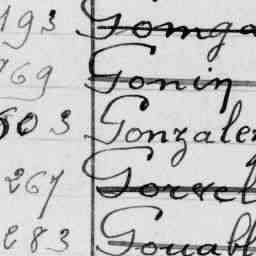 193 Gomga
769 Gonin
603 Gonzalez
267 Gorrel
283 Gouabl